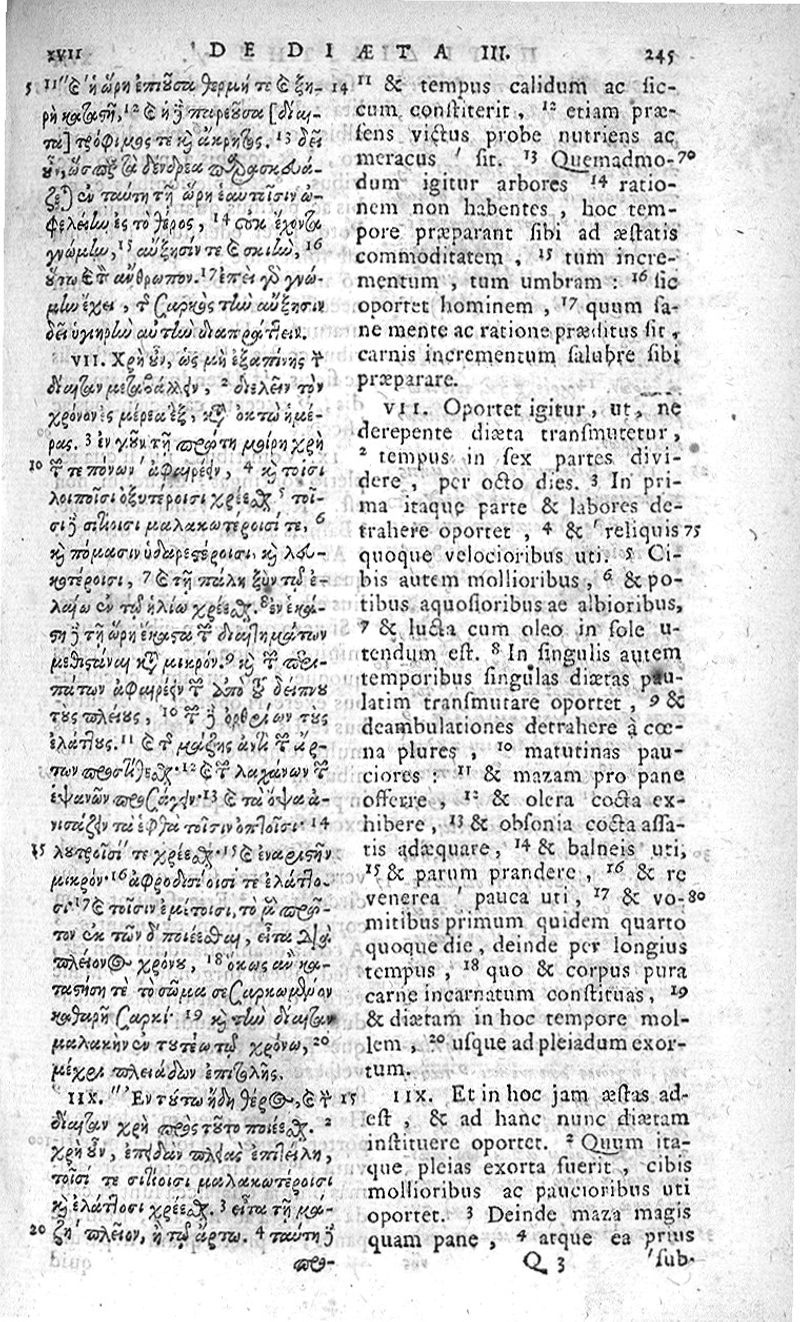 XVII DE DIÆTA III. 245
5 11 Ἐ ἡ ὥρη ἐπιοῦσα θερμή τε Ἐ ξη-
ρὴ καταστῇ, 12 Ἐ ἡ ἢ παρεοῦσα [δίαι-
τα] τρόφιμος τε κὴ ἄκρητος. 13 δεῖ
ὖν, ὥσπερ τὰ δένδρεα παρασκευά-
ζεται ἐν ταύτῃ τῇ ὥρῃ ἑαυτοῖσιν ὠ-
φελείην ἐς τὸ θέρος, 14 οὐκ ἔχοντα
γνώμην, 15 αὔξησίν τε Ἐ σκιὴν, 16
ὕτω Ἐ τὸν ἄνθρωπον. 17 ἐπεὶ γὸ γνώ-
μην ἔχει, τῆς σαρκὸς τὴν αὔξησιν
δεῖ ὑγιηρὴν αὐτὴν διαπράττειν.
VII. Χρὴ ὖν, ὡς μὴ ἐξαπίνης τὴν
δίαιταν μεταβάλλειν, 2 διελεῖν τὸν
χρόνον ἐς μέρεα ἓξ, κατ᾽ ὀκτὼ ἡμέ-
ρας. 3 ἐν γοῦν τῇ πρώτῃ μοίρῃ χρὴ
10 τῶν τε πόνων ἀφαιρέειν, 4 κὴ τοῖσι
λοιποῖσι ὀξυτέροισι χρέεσθαι. 5 τοῖ-
σι ἢ σιτίοισι μαλακωτέροισί τε, 6
κὴ πόμασιν ὑδαρεστέροισι κὴ λευ-
κοτέροισι, 7 Ἐ τῇ πάλῃ ξὺν τῷ ἐ-
λαίῳ ἐν τῷ ἡλίῳ χρέεσθαι. 8 ἐν ἑκά-
στῃ ἢ τῇ ὥρῃ ἕκαστα τῶν διαιτημάτων
μεθιστάναι κατὰ μικρόν. 9 κὴ τῶν περι-
πάτων ἀφαιρέειν τῶν ἀπὸ τοῦ δείπνου
τὺς πλείους, 10 τῶν ἢ ὀρθρίων τὺς
ἐλάττυς. 11 Ἐ τῆς μάζης ἀντὶ τῶν ἄρ-
των προστίθεσθαι· 12 Ἐ τῶν λαχάνων τῶν
ἑψανῶν προσάγειν· 13 Ἐ τὰ ὄψα ἀ-
νισάζειν τὰ ἑφθὰ τοῖσιν ὀπτοῖσι· 14
15 λυτροῖσί τε χρέεσθαι· 15 Ἐ ἐναριστῆν
μικρόν· 16 ἀφροδισίοισί τε ἐλάττο-
σι· 17 Ἐ τοῖσιν ἐμέτοισι, τὸ μὲν πρῶ-
τον ἐκ τῶν δ´ ποιέεσθαι, εἶτα διὰ
πλείονος χρόνυ, 18 ὅκως ἂν κα-
ταστήσῃ τε τὸ σῶμα σεσαρκωμένον
καθαρῇ σαρκί· 19 κὴ τὴν δίαιταν
μαλακὴν ἐν τυτέῳ τῷ χρόνῳ, 20
μέχρι πλειάδων ἐπιτολῆς.
IIX. Ἐν τύτῳ ἤδη θέρος, Ἐ τὴν
δίαιταν χρὴ πρὸς τῦτο ποιέεσθαι. 2
χρὴ ὖν, ἐπειδὰν πληϊὰς ἐπιτείλῃ,
τοῖσί τε σιτίοισι μαλακωτέροισι
κὴ ἐλάττοσι χρέεσθαι. 3 εἶτα τῇ μά-
20 ζῃ πλεῖον, ἢ τῷ ἄρτῳ. 4 ταύτῃ ἢ
προ-
14 11 & tempus calidum ac sic-
cum constiterit, 12 etiam præ-
sens victus probe nutriens ac
meracus ' sit. 13 Quemadmo- 70
dum igitur arbores 14 ratio-
nem non habentes, hoc tem-
pore præparant sibi ad æstatis
commoditatem, 15 tum incre-
mentum, tum umbram: 16 sic
oportet hominem, 17 quum sa-
ne mente ac ratione præditus sit,
carnis incrementum salubre sibi
præparare.
VII. Oportet igitur, ut, ne
derepente diæta transmutetur,
2 tempus in sex partes divi-
dere, per octo dies. 3 In pri-
ma itaque parte & labores de-
trahere oportet, 4 & ' reliquis 75
quoque velocioribus uti. 5 Ci-
bis autem mollioribus, 6 & po-
tibus aquosioribus ac albioribus,
7 & lucta cum oleo in sole u-
tendum est. 8 In singulis autem
temporibus singulas diætas pau-
latim transmutare oportet, 9 &
deambulationes detrahere à cœ-
na plures, 10 matutinas pau-
ciores: 11 & mazam pro pane
offerre, 12 & olera cocta ex-
hibere, 13 & obsonia cocta assa-
tis adæquare, 14 & balneis uti,
15 & parum prandere, 16 & re
venerea ' pauca uti, 17 & vo- 80
mitibus primum quidem quarto
quoque die, deinde per longius
tempus, 18 quo & corpus pura
carne incarnatum constituas, 19
& diætam in hoc tempore mol-
lem, 20 usque ad pleiadum exor-
tum.
15 IIX. Et in hoc jam æstas ad-
est, & ad hanc nunc diætam
instituere oportet. 2 Quum ita-
que pleias exorta fuerit, cibis
mollioribus ac paucioribus uti
oportet. 3 Deinde maza magis
quam pane, 4 atque ea prius
Q 3 'sub-